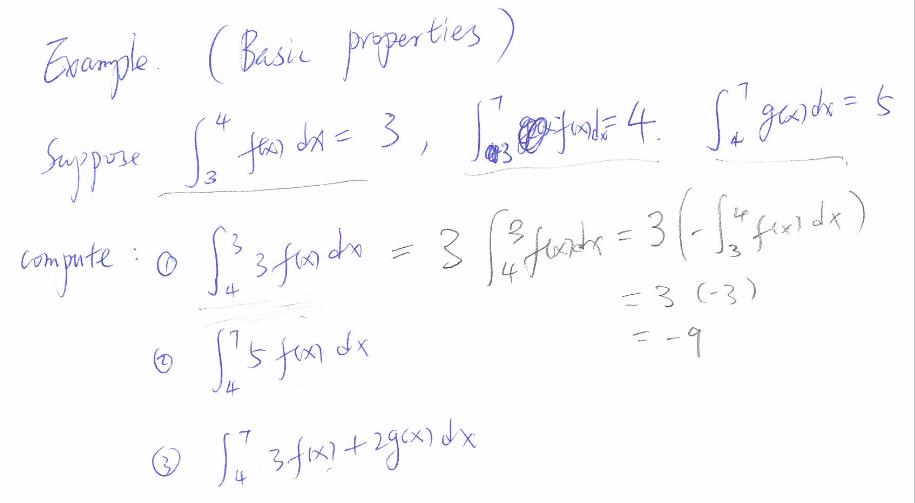 Example. (Basic properties)
Suppose ∫_3^4 f(x) dx = 3, ∫_3^7 f(x) dx = 4. ∫_4^7 g(x) dx = 5
compute: ① ∫_4^3 3 f(x) dx = 3 ∫_4^3 f(x) dx = 3 (-∫_3^4 f(x) dx)
= 3 (-3)
= -9
② ∫_4^7 5 f(x) dx
③ ∫_4^7 3 f(x) + 2g(x) dx